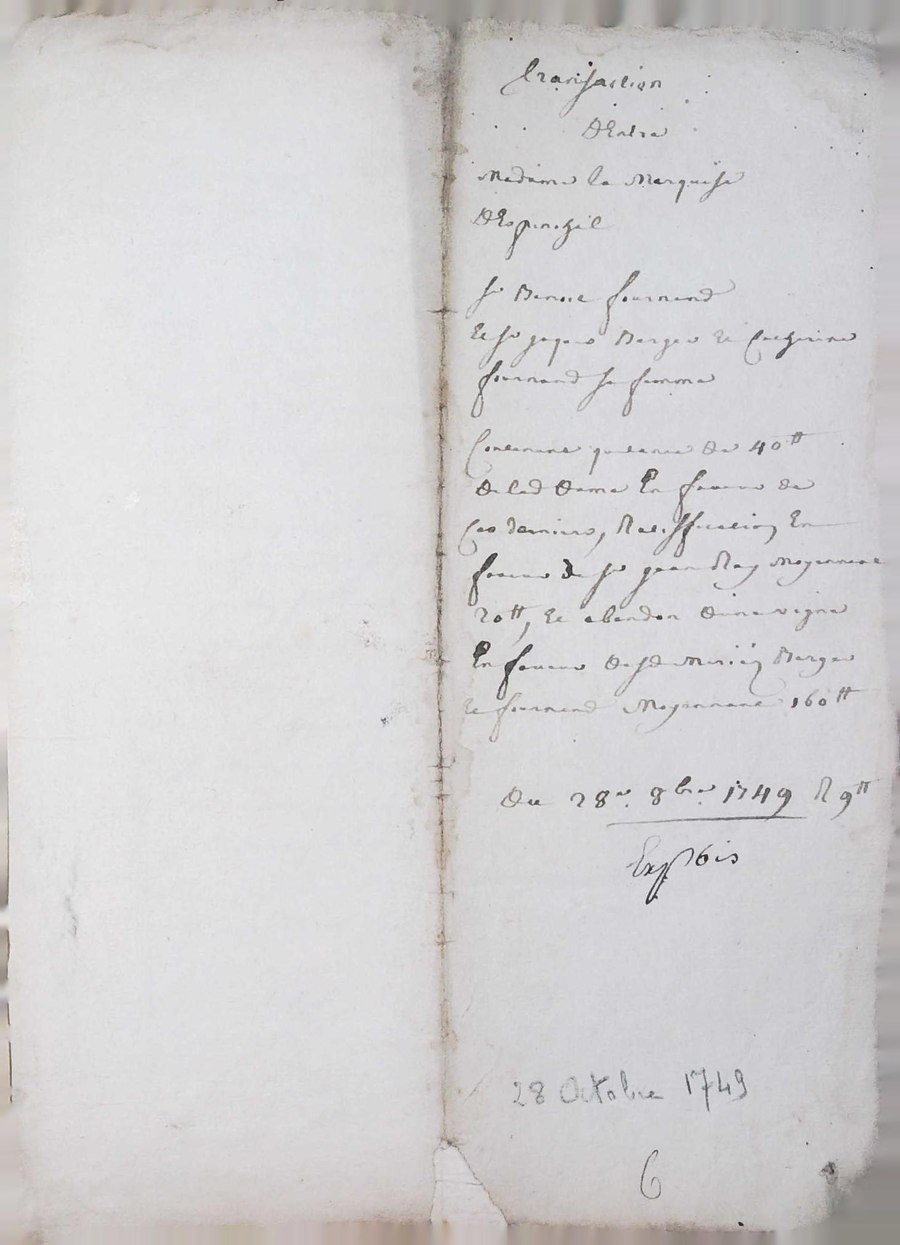 transaction
D'Entre
Madame la Marquise
D'Espinchal
sr Benoit fournend
Et sr jaques Berger et Catherine
fournend sa femme
Contenant quitance de 40tt
de lad dame En faveur de
Ces derniers, Ratiffication En
faveur de sr jean Moyennant
20tt, et abandon d'une vigne
En faveur desd Mariés Berger
et fournend Moyennant 160tt
Du 28e 8bre 1749 R 9tt
28 Octobre 1749
6